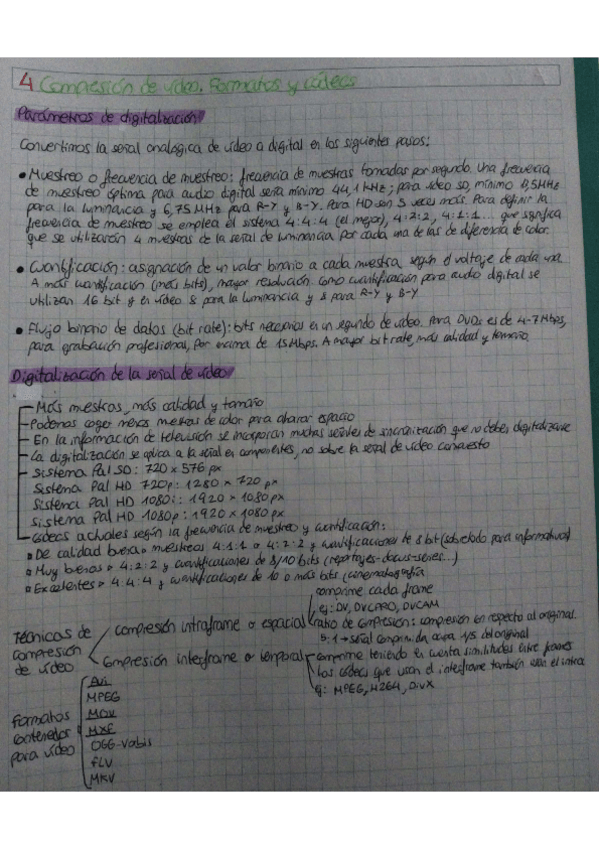 4 Compresión de vídeo. Formatos y códecs
Parámetros de digitalización
Convertimos la señal analógica de vídeo a digital en los siguientes pasos:
• Muestreo o frecuencia de muestreo: frecuencia de muestras tomadas por segundo. Una frecuencia
de muestreo óptima para audio digital sería mínimo 44,1 kHz; para vídeo SD, mínimo 13,5MHz
para la luminancia y 6,75 MHz para R-Y y B-Y. Para HD son 5 veces más. Para definir la
frecuencia de muestreo se emplea el sistema 4:4:4 (el mejor), 4:2:2, 4:1:1... que significa
que se utilizarán 4 muestras de la señal de luminancia por cada una de las de diferencia de color.
• Cuantificación: asignación de un valor binario a cada muestra, según el voltaje de cada una.
A más cuantificación (más bits), mayor resolución. Como cuantificación para audio digital se
utilizan 16 bit y en vídeo 8 para la luminancia y 8 para R-Y y B-Y
• Flujo binario de datos (bit rate): bits necesarios en un segundo de vídeo. Para DVDs es de 4-7Mbps,
para grabación profesional, por encima de 15Mbps. A mayor bit rate, más calidad y tamaño.
Digitalización de la señal de vídeo
Más muestras, más calidad y tamaño
Podemos coger menos muestras de color para ahorrar espacio
En la información de televisión se incorporan muchas señales de sincronización que no deben digitalizarse
La digitalización se aplica a la señal en componentes, no sobre la señal de vídeo compuesto
Sistema Pal SD: 720 x 576 px
Sistema Pal HD 720p: 1280 x 720 px
Sistema Pal HD 1080i: 1920 x 1080 px
Sistema Pal HD 1080p: 1920 x 1080 px
Códecs actuales según la frecuencia de muestreo y cuantificación:
De calidad buena → muestreos 4:1:1 o 4:2:2 y cuantificaciones de 8 bit (sobretodo para informativos)
Muy buenos → 4:2:2 y cuantificaciones de 8/10 bits (reportajes-docus-series...)
Excelentes → 4:4:4 y cuantificaciones de 10 o más bits (cinematografía
Técnicas de compresión de vídeo
Compresión intraframe o espacial
comprime cada frame
ej: DV, DVCPRO, DVCAM
ratio de compresión: compresión en respecto al original.
5:1 → señal comprimida ocupa 1/5 del original
Compresión interframe o temporal
comprime teniendo en cuenta similitudes entre frames
Los códecs que usan el interframe también usan el intra
ej: MPEG, H264, DivX
Formatos contenedor para vídeo
Avi
MPEG
MOV
MXF
OGG-Vorbis
FLV
MKV